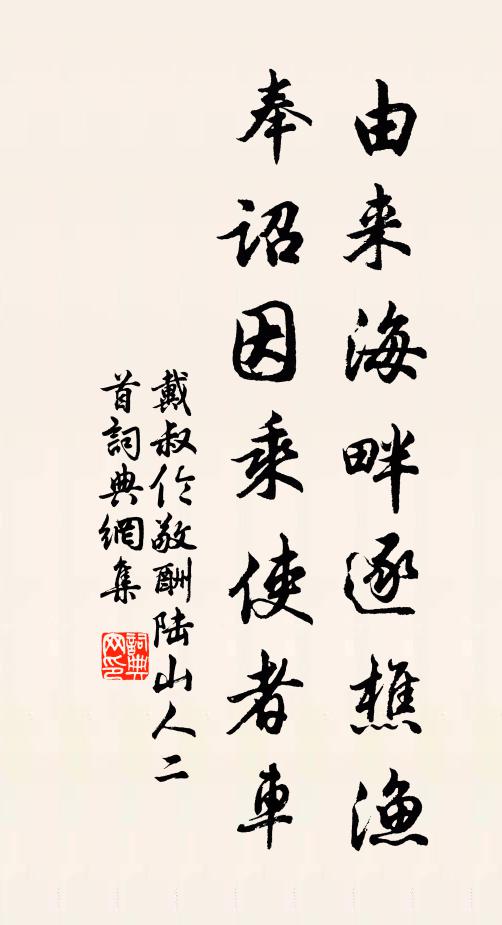 由来海畔逐樵漁
奉詔因乘使者車
戴叔伦敬酬陆山人二
首詞典網集
詞典網印